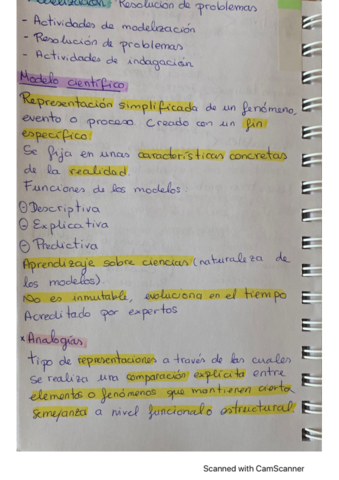 Resolución de problemas
- Actividades de modelización
- Resolución de problemas
- Actividades de indagación
Modelo científico
Representación simplificada de un fenómeno,
evento o proceso. Creado con un fin
específico.
Se fija en unas características concretas
de la realidad.
Funciones de los modelos:
Descriptiva
Explicativa
Predictiva
Aprendizaje sobre ciencias (naturaleza de
los modelos).
No es inmutable, evoluciona en el tiempo
Acreditado por expertos
* Analogías
Tipo de representaciones a través de las cuales
se realiza una comparación explícita entre
elementos o fenómenos que mantienen cierta
semejanza a nivel funcional o estructural.
Scanned with CamScanner